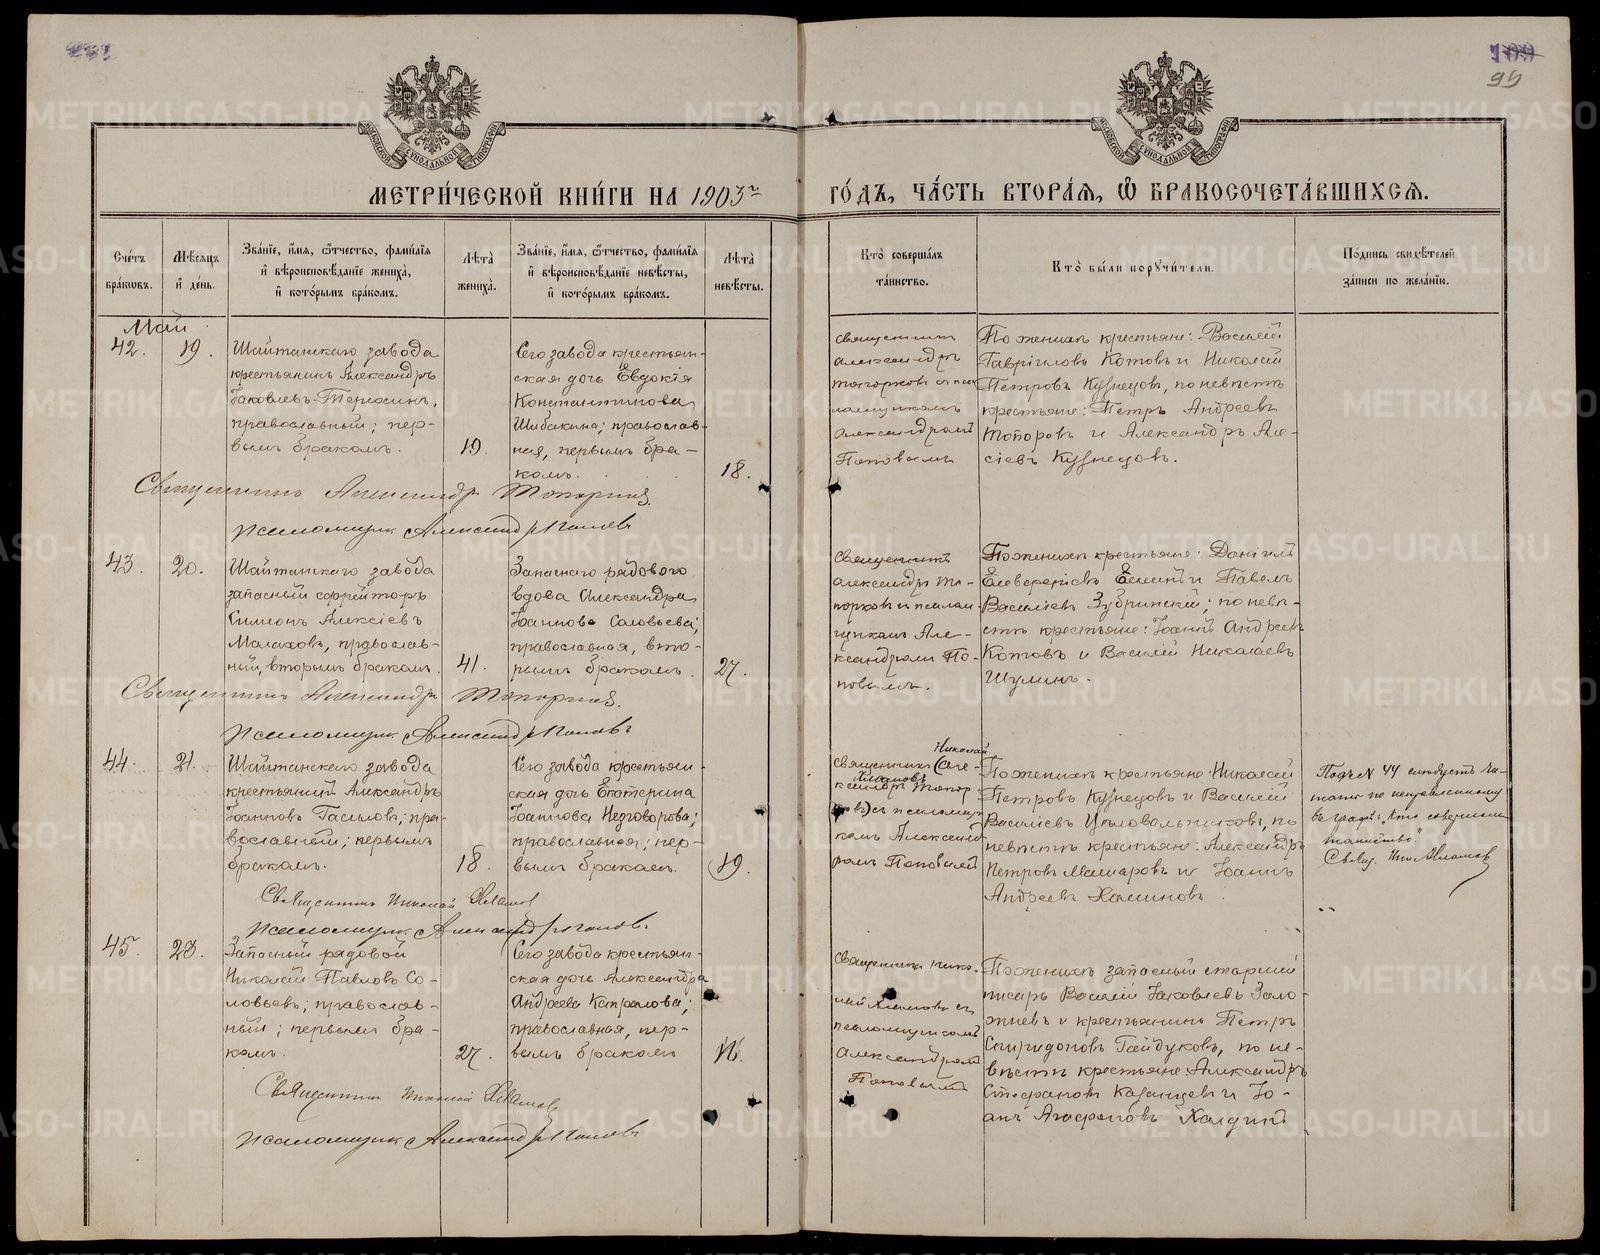 109
99
МЕТРИ́ЧЕСКОЙ КНИ́ГИ НА 1903 г.
ГО́ДЪ, ЧА́СТЬ ВТОРА́Я, Ѿ БРАКОСОЧЕТА́ВШИХСЯ.
Сче́тъ бра́ковъ.
Мѣ́сяцъ и҆ де́нь.
Зва́нїе, и҆́мя, ѻ҆́тчество, фами́лїя и҆ вѣроисповѣ́данїе жениха̀, и҆ кото́рымъ бра́комъ.
Лѣта̀ жениха̀.
Зва́нїе, и҆́мя, ѻ҆́тчество, фами́лїя и҆ вѣроисповѣ́данїе невѣ́сты, и҆ кото́рымъ бра́комъ.
Лѣта̀ невѣ́сты.
Кто̀ соверша́лъ та́инство.
Кто̀ бы́ли порꙋчи́тели.
По́дпись свидѣ́телей за́писи по жела́нїю.
Май
42. 19.
Шайтанскаго завода
крестьянинъ Александръ
Іаковлевъ Терюхинъ,
православный; пер-
вымъ бракомъ.
19.
Сего завода крестьян-
ская дочь Евдокія
Константинова
Шибакина; православ-
ная, первымъ бра-
комъ.
18.
Священникъ
Александръ
Топорковъ съ псал-
ломщикомъ
Александромъ
Поповымъ
По женихѣ крестьяне: Василій
Гавріиловъ Котовъ и Николай
Петровъ Кузнецовъ, по невѣстѣ
крестьяне: Петръ Андреевъ
Топоровъ и Александръ Але-
сіевъ Кузнецовъ.
Священникъ Александръ Топорковъ
Псаломщикъ Александръ Поповъ
43. 20.
Шайтанскаго завода
запасный ефрейторъ
Симеонъ Алексіевъ
Малаховъ, православ-
ный, вторымъ бракомъ.
41.
Запаснаго рядового
вдова Александра
Іоаннова Соловьева;
православная, вто-
рымъ бракомъ.
27.
Священникъ
Александръ То-
порковъ и псалом-
щикомъ Але-
ксандромъ По-
повымъ.
По женихѣ крестьяне: Даніилъ
Елевферіевъ и Павелъ
Василіевъ Зубринскій; по невѣ-
стѣ крестьяне: Іоаннъ Андреевъ
Котовъ и Василій Николаевъ
Шулинъ.
Священникъ Александръ Топорковъ
Псаломщикъ Александръ Поповъ
44. 21.
Шайтанскаго завода
крестьянинъ Александръ
Іоанновъ Гасиловъ; пра-
вославный; первымъ
бракомъ.
18.
Сего завода крестьян-
ская дочь Екатерина
Іоаннова Незговорова;
православная; пер-
вымъ бракомъ.
19.
Николай
Священникъ (Але-
Хламовъ
ксандръ Топор-
ковъ) съ псаломщи-
комъ Александ-
ромъ Поповымъ
По женихѣ крестьяне: Николай
Петровъ Кузнецовъ и Василій
Василіевъ Цѣловальниковъ, по
невѣстѣ крестьяне: Александръ
Петровъ Машаровъ и Іоаннъ
Андреевъ Халиновъ.
Подъ № 44 слѣдуетъ чи-
тать по исправленному
въ графѣ: „Кто совершалъ
таинство“.
Свящ. Ник. Хламовъ
Священникъ Николай Хламовъ
Псаломщикъ Александръ Поповъ.
45. 28.
Запасный рядовой
Николай Павловъ Со-
ловьевъ; православ-
ный; первымъ бра-
комъ.
27.
Сего завода крестьян-
ская дочь Александра
Андреева Катралова;
православная, пер-
вымъ бракомъ
Священникъ Нико-
лай Хламовъ съ
псаломщикомъ
Александромъ
Поповымъ
По женихѣ запасный старшій
писарь Василій Іаковлевъ Зало-
жневъ и крестьянинъ Петръ
Спиридоновъ Гайдуковъ, по не-
вѣстѣ крестьяне: Александръ
Стефановъ Казанцевъ и Іо-
анъ Агафоновъ Халдинъ
Священникъ Николай Хламовъ
Псаломщикъ Александръ Поповъ
METRIKI.GASO-URAL.RU